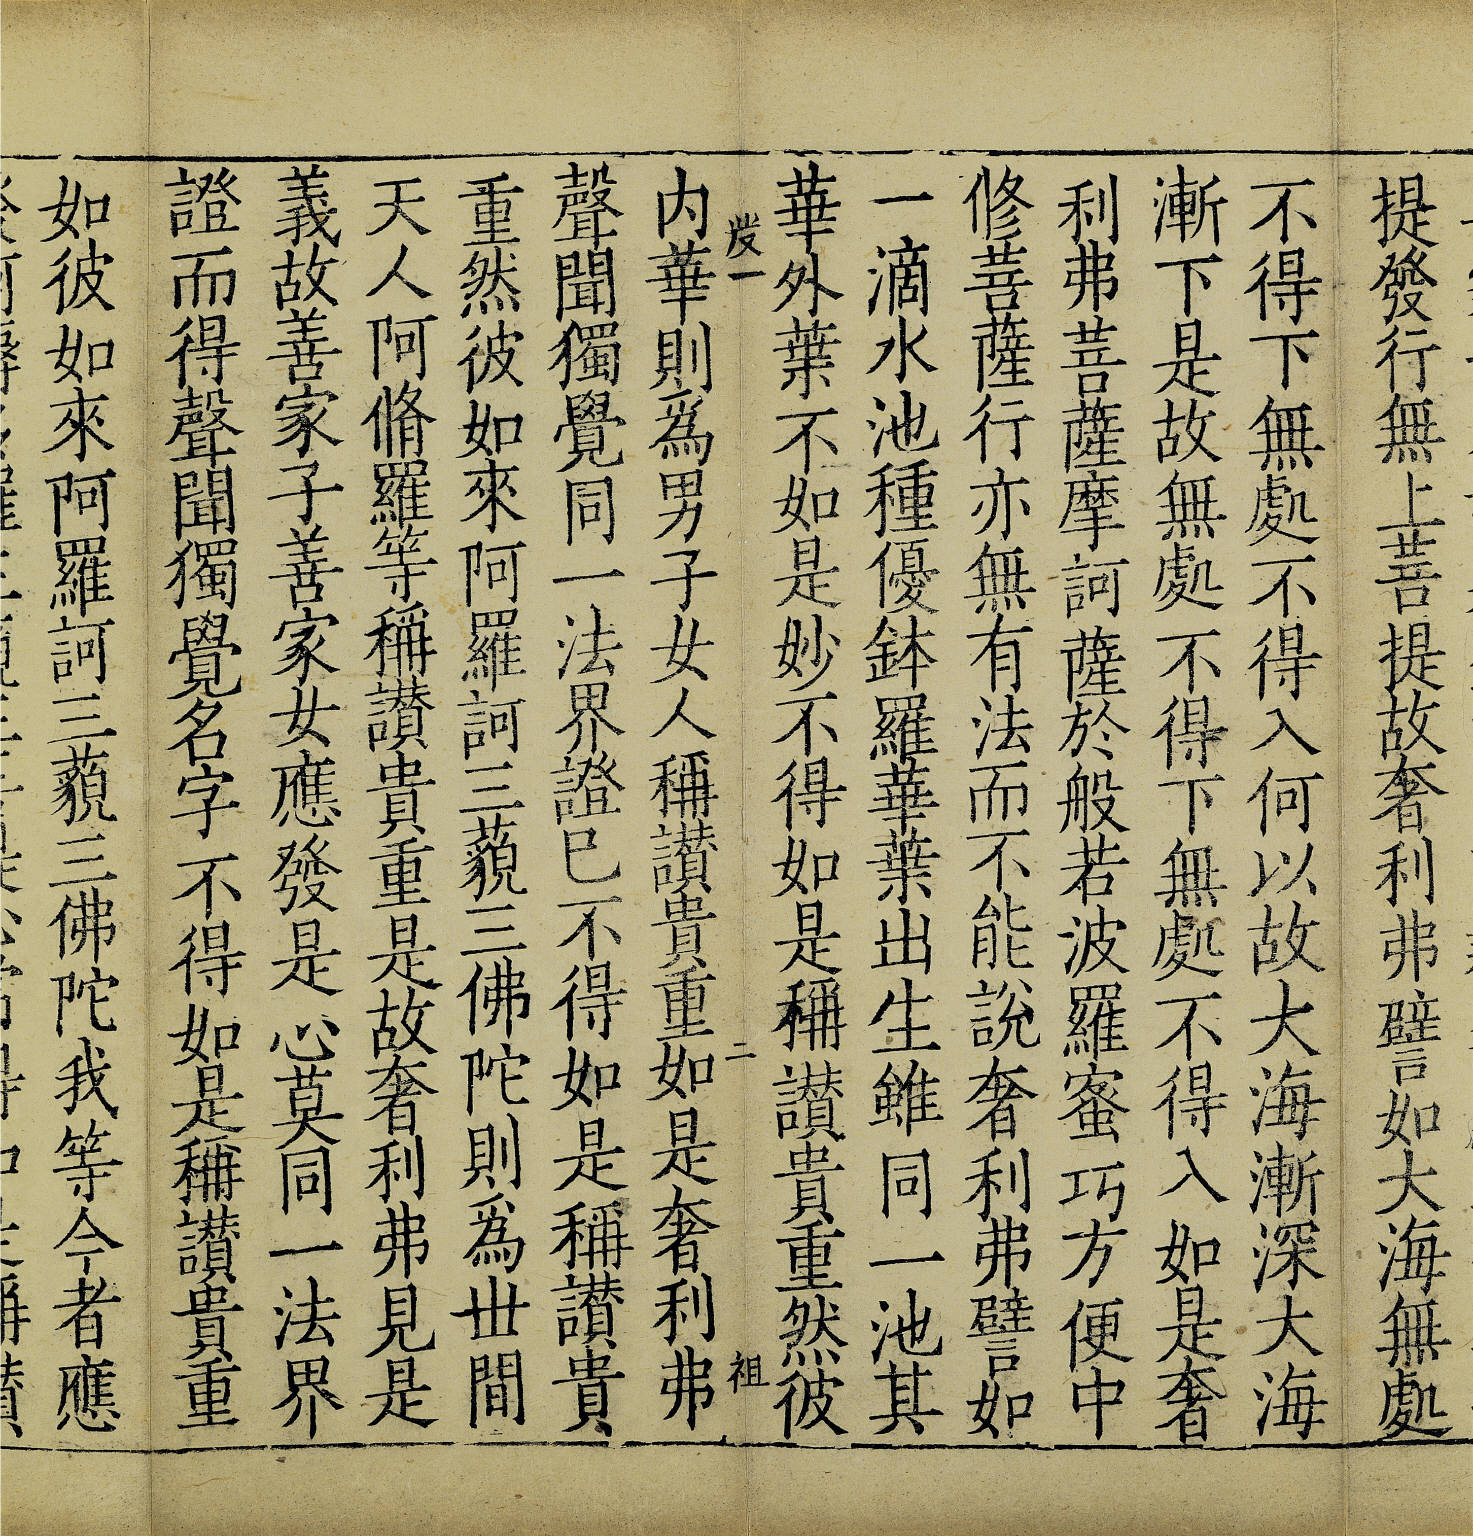 提發行無上菩提故奢利弗譬如大海無處
不得下無處不得入何以故大海漸深大海
漸下是故無處不得下無處不得入如是奢
利弗菩薩摩訶薩於般若波羅蜜巧方便中
修菩薩行亦無有法而不能說奢利弗譬如
一滴水池種優鉢羅華葉出生雖同一池其
華外葉不如是妙不得如是稱讃貴重然彼
𤼵一 二 祖
内華則爲男子女人稱讃貴重如是奢利弗
聲聞獨覺同一法界證已不得如是稱讃貴
重然彼如來阿羅訶三藐三佛陀則爲世間
天人阿脩羅等稱讃貴重是故奢利弗見是
義故善家子善家女應發是心莫同一法界
證而得聲聞獨覺名字不得如是稱讃貴重
如彼如來阿羅訶三藐三佛陀我等今者應